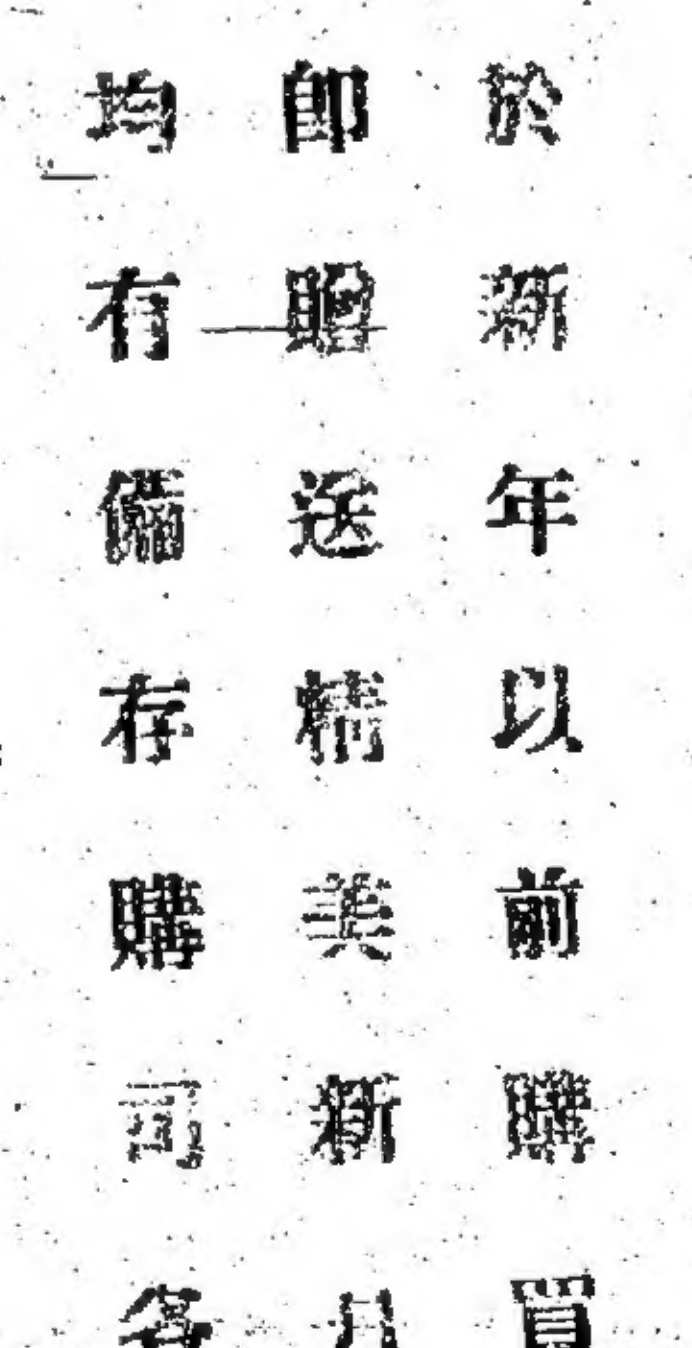 於新年以前購買
即贈送精美新月
均有備存購司各